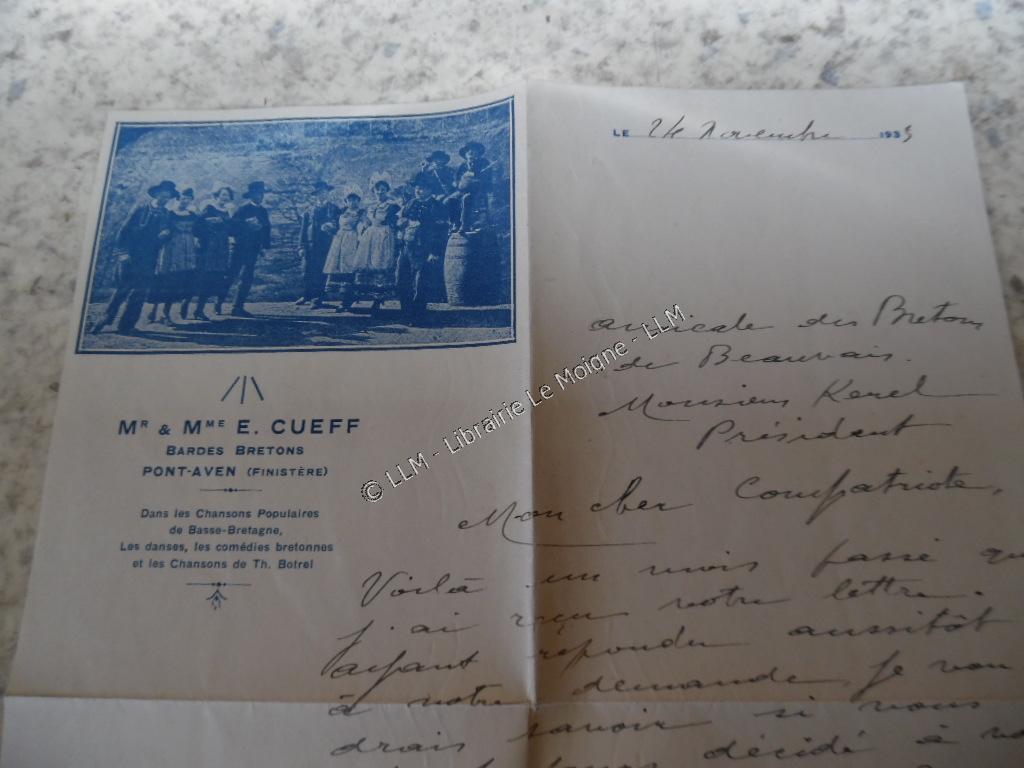 LE 24 Novembre 1935
Amicale des Bretons
de Beauvais.
Monsieur Kerel
Président
Mon cher Compatriote,
MR & MME E. CUEFF
BARDES BRETONS
PONT-AVEN (FINISTÈRE)
Dans les Chansons Populaires
de Basse-Bretagne,
Les danses, les comédies bretonnes
et les Chansons de Th. Botrel
Voilà un mois passé que
j'ai reçu votre lettre.
ayant répondu aussitôt
à votre demande, je vou
drais savoir si vous
décidé à
© LLM - Librairie Le Moigne - LLM.